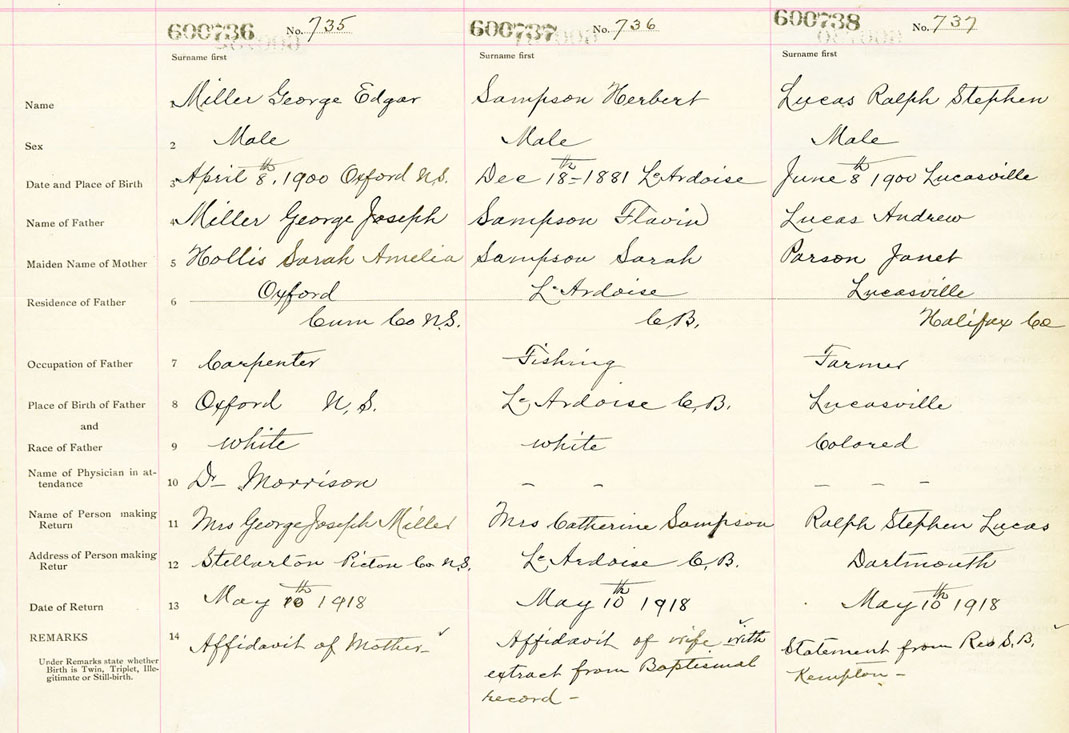 600736 No. 735 600737 No. 736 600738 No. 737
Surname first Surname first Surname first
Name 1 Miller George Edgar Sampson Herbert Lucas Ralph Stephen
Sex 2 Male Male Male
Date and Place of Birth 3 April 8th, 1900 Oxford N.S. Dec 18th 1881 L'Ardoise June 8th 1900 Lucasville
Name of Father 4 Miller George Joseph Sampson Flavin Lucas Andrew
Maiden Name of Mother 5 Hollis Sarah Amelia Sampson Sarah Parson Janet
Residence of Father 6 Oxford L'Ardoise Lucasville
Cum Co N.S. C.B. Halifax Co
Occupation of Father 7 Carpenter Fishing Farmer
Place of Birth of Father 8 Oxford N.S. L'Ardoise C.B. Lucasville
and
Race of Father 9 White White Colored
Name of Physician in at-
tendance 10 Dr Morrison - - - - -
Name of Person making
Return 11 Mrs George Joseph Miller Mrs Catherine Sampson Ralph Stephen Lucas
Address of Person making
Retur 12 Stellarton Picton Co N.S. L'Ardoise C.B. Dartmouth
Date of Return 13 May 10th 1918 May 10th 1918 May 10th 1918
REMARKS 14 Affidavit of Mother Affidavit of wife with Statement from Rev S.B.
Under Remarks state whether
Birth is Twin, Triplet, Ille-
gitimate or Still-birth.
extract from Baptismal Kempton -
record -